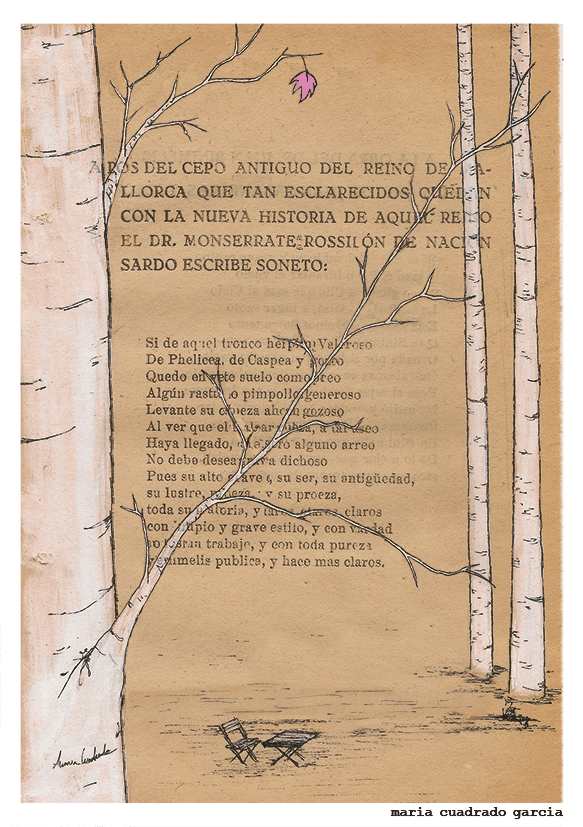 A LOS DEL CEPO ANTIGUO DEL REINO DE
LLORCA QUE TAN ESCLARECIDOS QUEDAN
CON LA NUEVA HISTORIA DE AQUEL REINO
EL DR. MONSERRATE ROSSILÓN DE NACIÓN
SARDO ESCRIBE SONETO:
Si de aquel tronco Valeroso
De Phelicea, de Caspea y
Quedo en este suelo como
Algún rastro o pimpollo generoso
Levante su cabeza ahora gozoso
Al ver que el
Haya llegado, que alguno arreo
No debe desear dichoso
Pues su alto grave su ser, su antigüedad,
su lustre, y su proeza,
toda su claros
con limpio y grave estilo, y con verdad
trabajo, y con toda pureza
publica, y hace mas claros.
maria cuadrado garcia